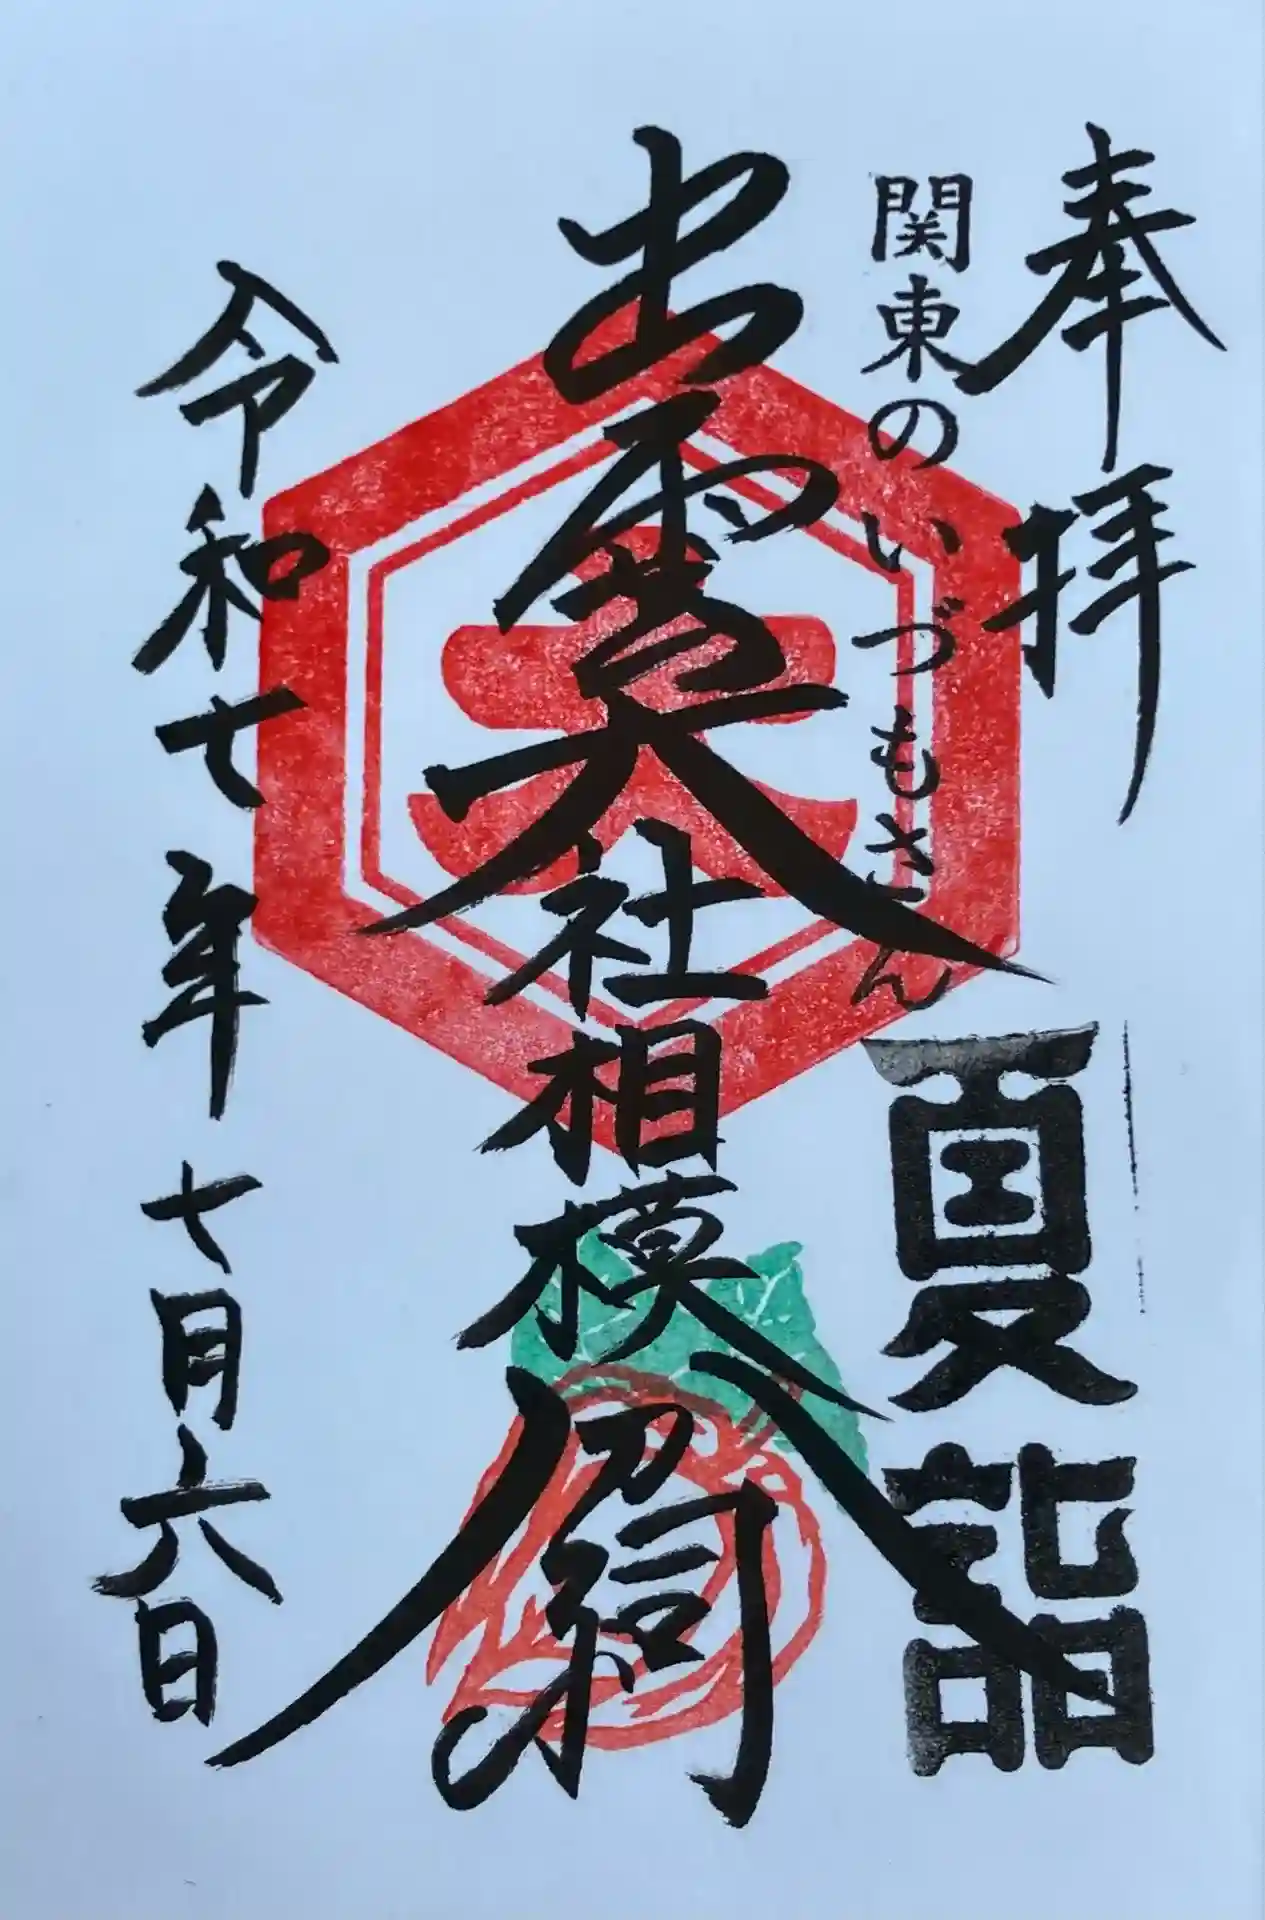 奉拝
関東のいづもさん
夏詣
出雲大社相模分祠
大
令和七年七月六日